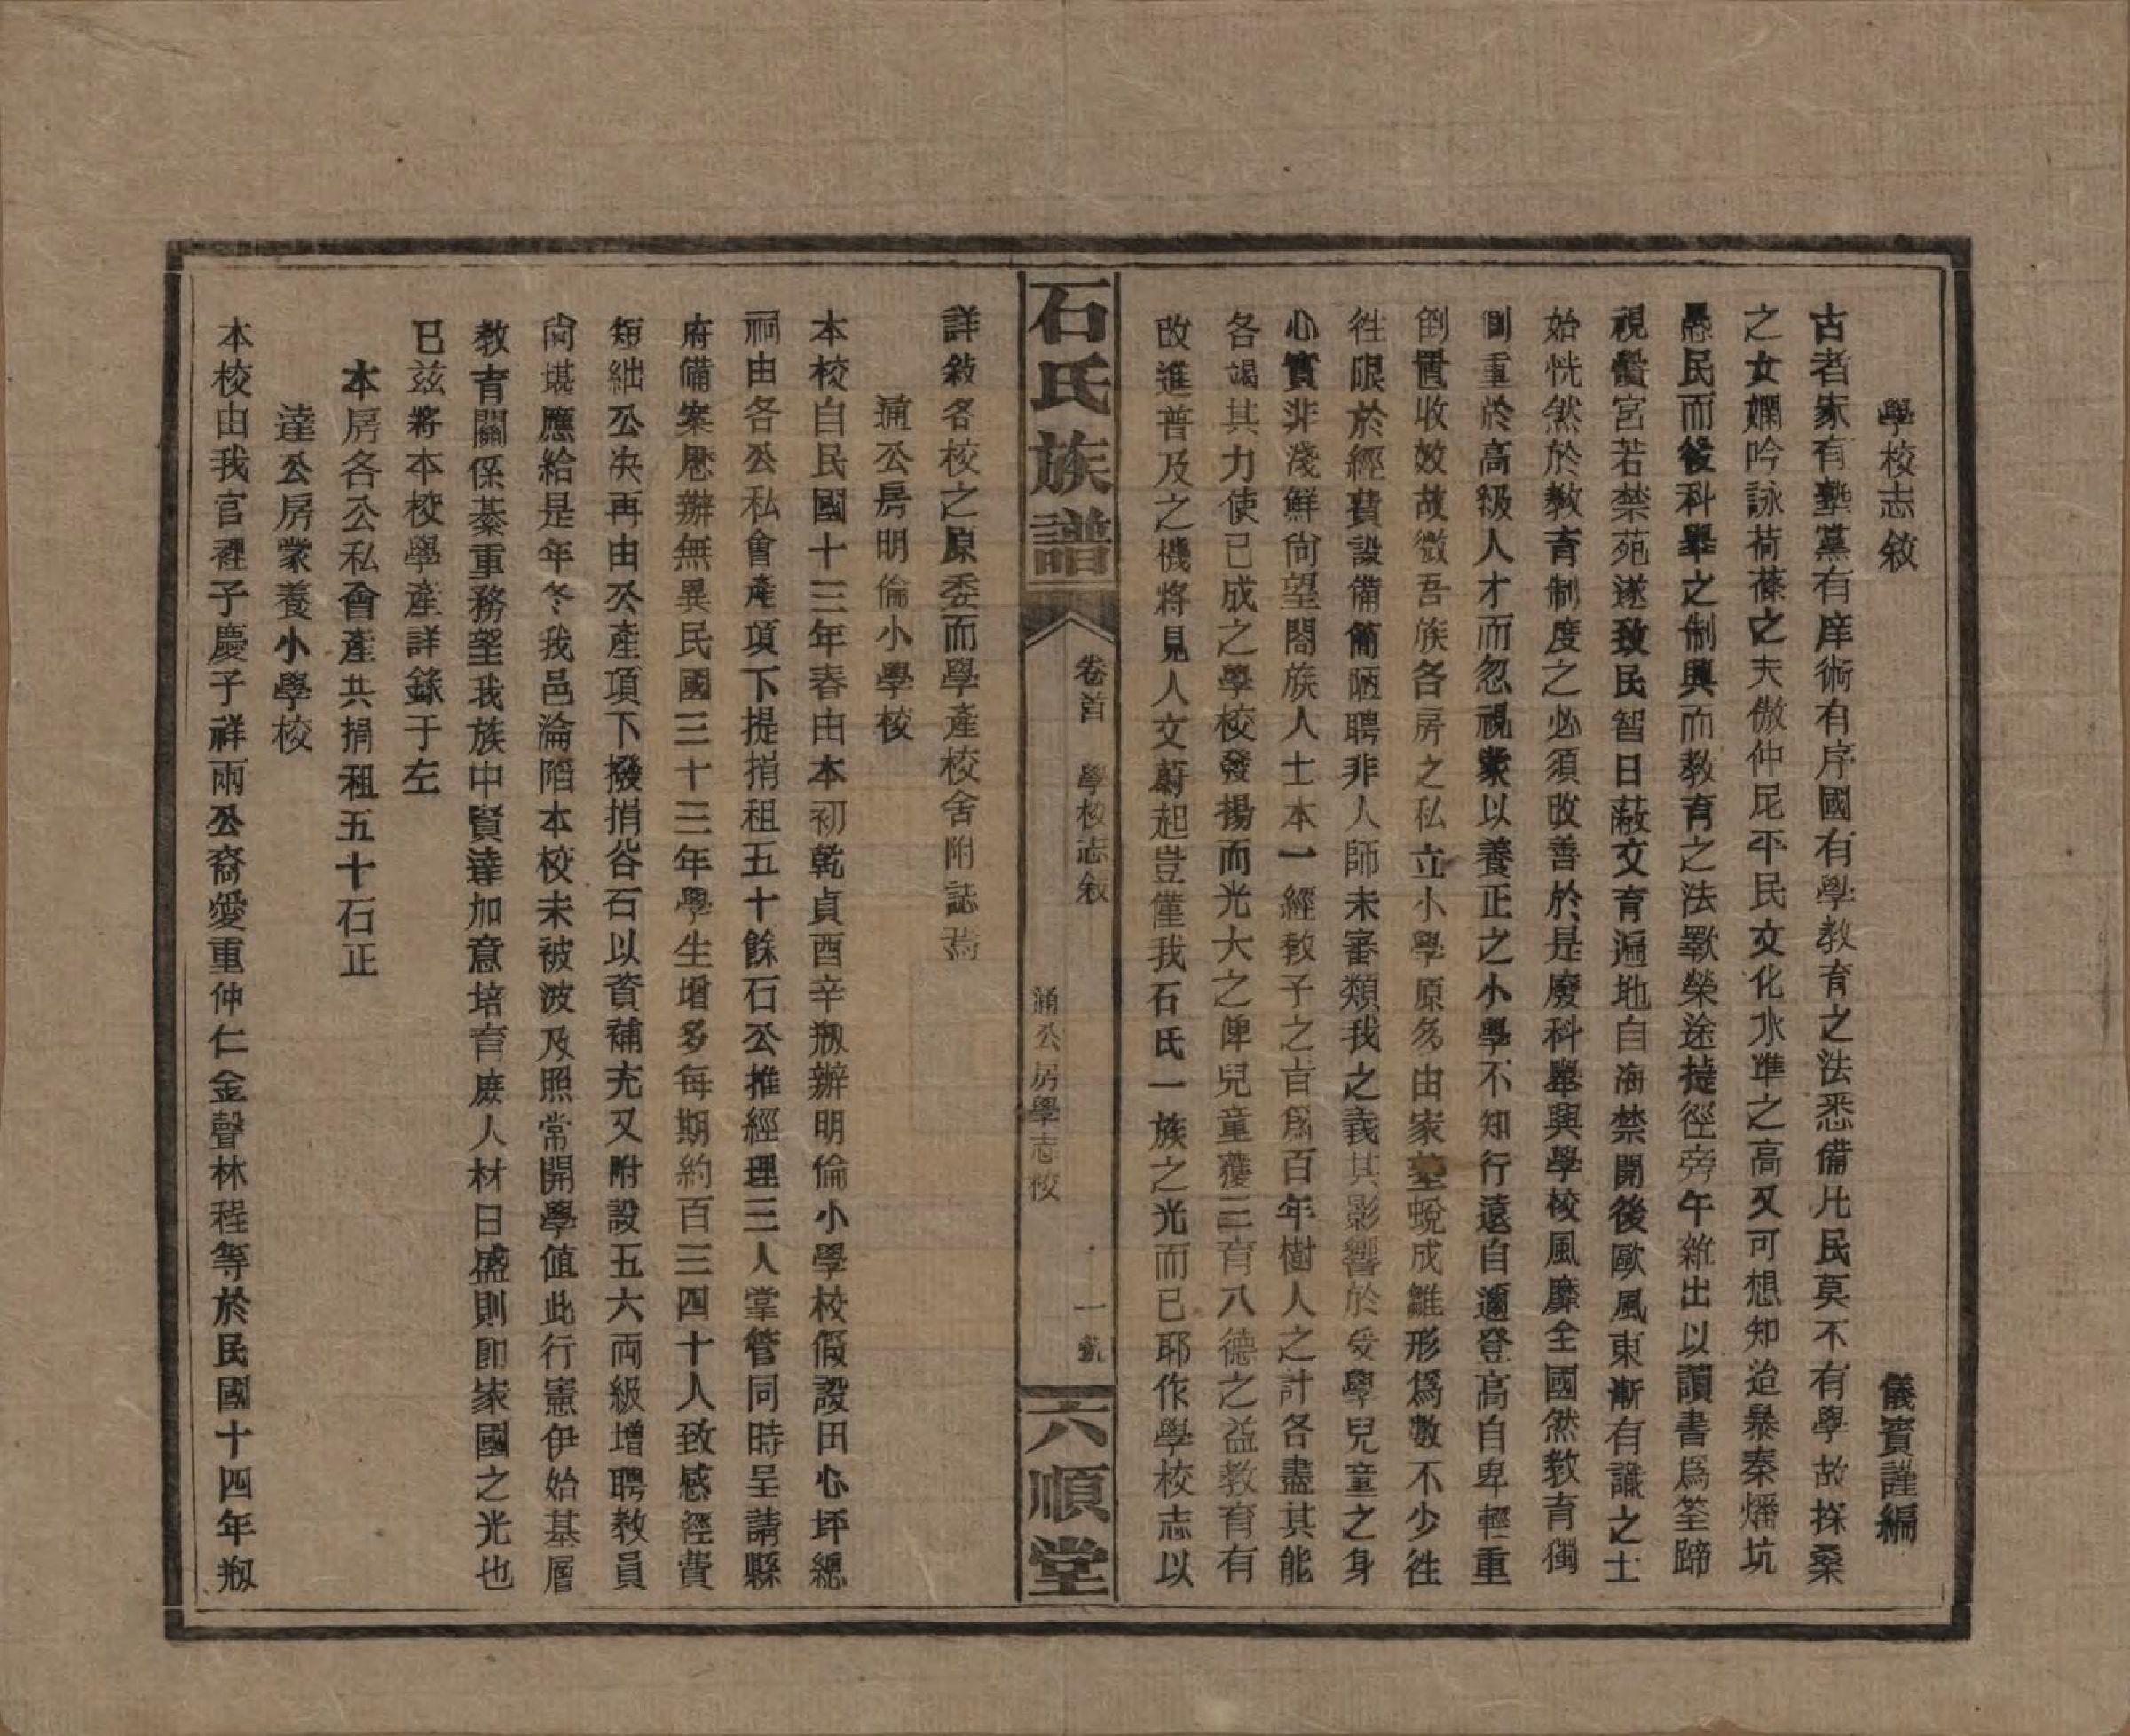 學校志敘
儀賓謹編
古者家有塾黨有庠術有序國有學教育之法悉備凡民莫不有學故採桑
之女嫻吟詠荷蓧之夫傲仲尼平民文化水準之高又可想知迨暴秦燔坑
愚民而後科舉之制興而教育之法斁榮途捷徑旁午雜出以讀書爲筌蹄
視黌宮若禁苑遂致民智日蔽文育遍地自海禁開後歐風東漸有識之士
始恍然於教育制度之必須改善於是廢科舉興學校風靡全國然教育獨
側重於高級人才而忽視蒙以養正之小學不知行遠自邇登高自卑輕重
倒置收效故微吾族各房之私立小學原多由家塾蛻成雛形爲數不少往
往限於經費設備簡陋聘非人師未審類我之義其影響於受學兒童之身
心實非淺鮮尙望閤族人士本一經敎子之旨爲百年樹人之計各盡其能
各竭其力使已成之學校發揚而光大之俾兒童獲三育八德之益教育有
改進普及之機將見人文蔚起豈僅我石氏一族之光而已耶作學校志以
石氏族譜
卷首 學校志敘
通公房學志校
一
六順堂
詳敘各校之原委而學產校舍附誌焉
通公房明倫小學校
本校自民國十三年春由本初乾貞酉辛剏辦明倫小學校假設田心坪總
祠由各公私會產項下提捐租五十餘石公推經理三人掌管同時呈請縣
府備案歷辦無異民國三十三年學生增多每期約百三四十人致感經費
短絀公决再由公產項下撥捐谷石以資補充又附設五六両級增聘教員
尙堪應給是年冬我邑淪陷本校未被波及照常開學値此行憲伊始基層
教育關係綦重務望我族中賢達加意培育庶人材日盛則卽家國之光也
已兹將本校學產詳錄于左
本房各公私會產共捐租五十石正
達公房蒙養小學校
本校由我官裡子慶子祥兩公裔愛重仲仁金聲林程等於民國十四年剏